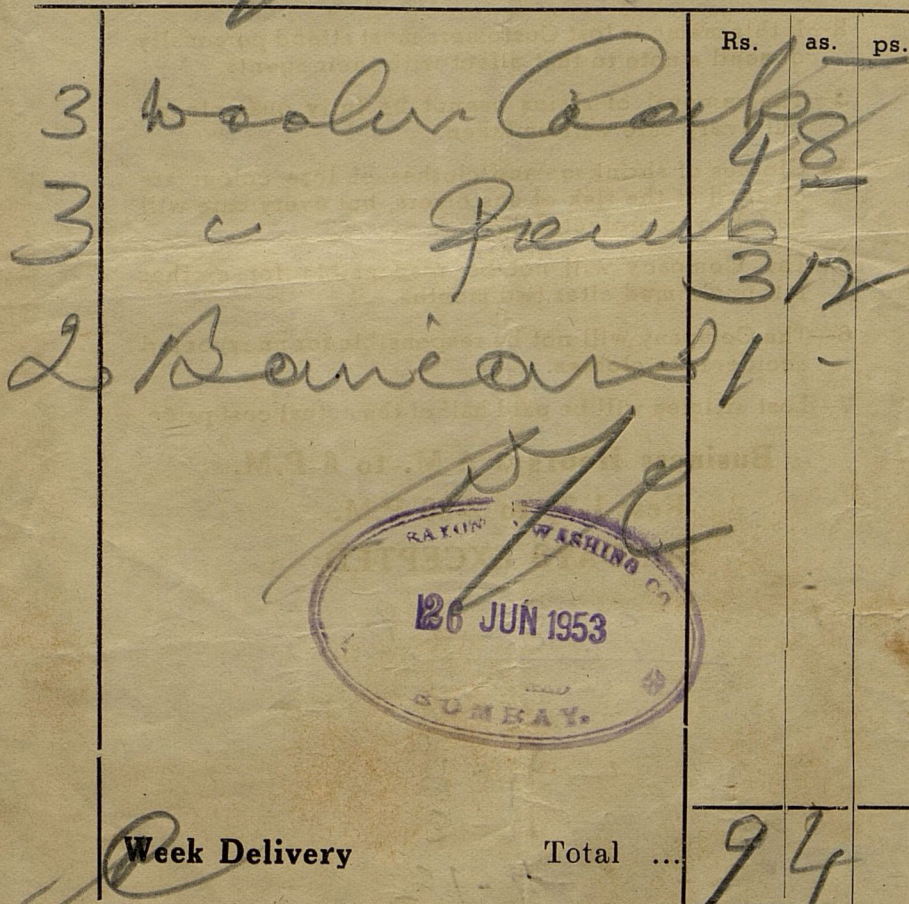 Rs. as. ps.
3 woolen Coats 4 8
3 " Pants 3 12
2 Banians 1 -
RAYON WASHING CO
26 JUN 1953
BOMBAY.
Week Delivery Total ... 9 4